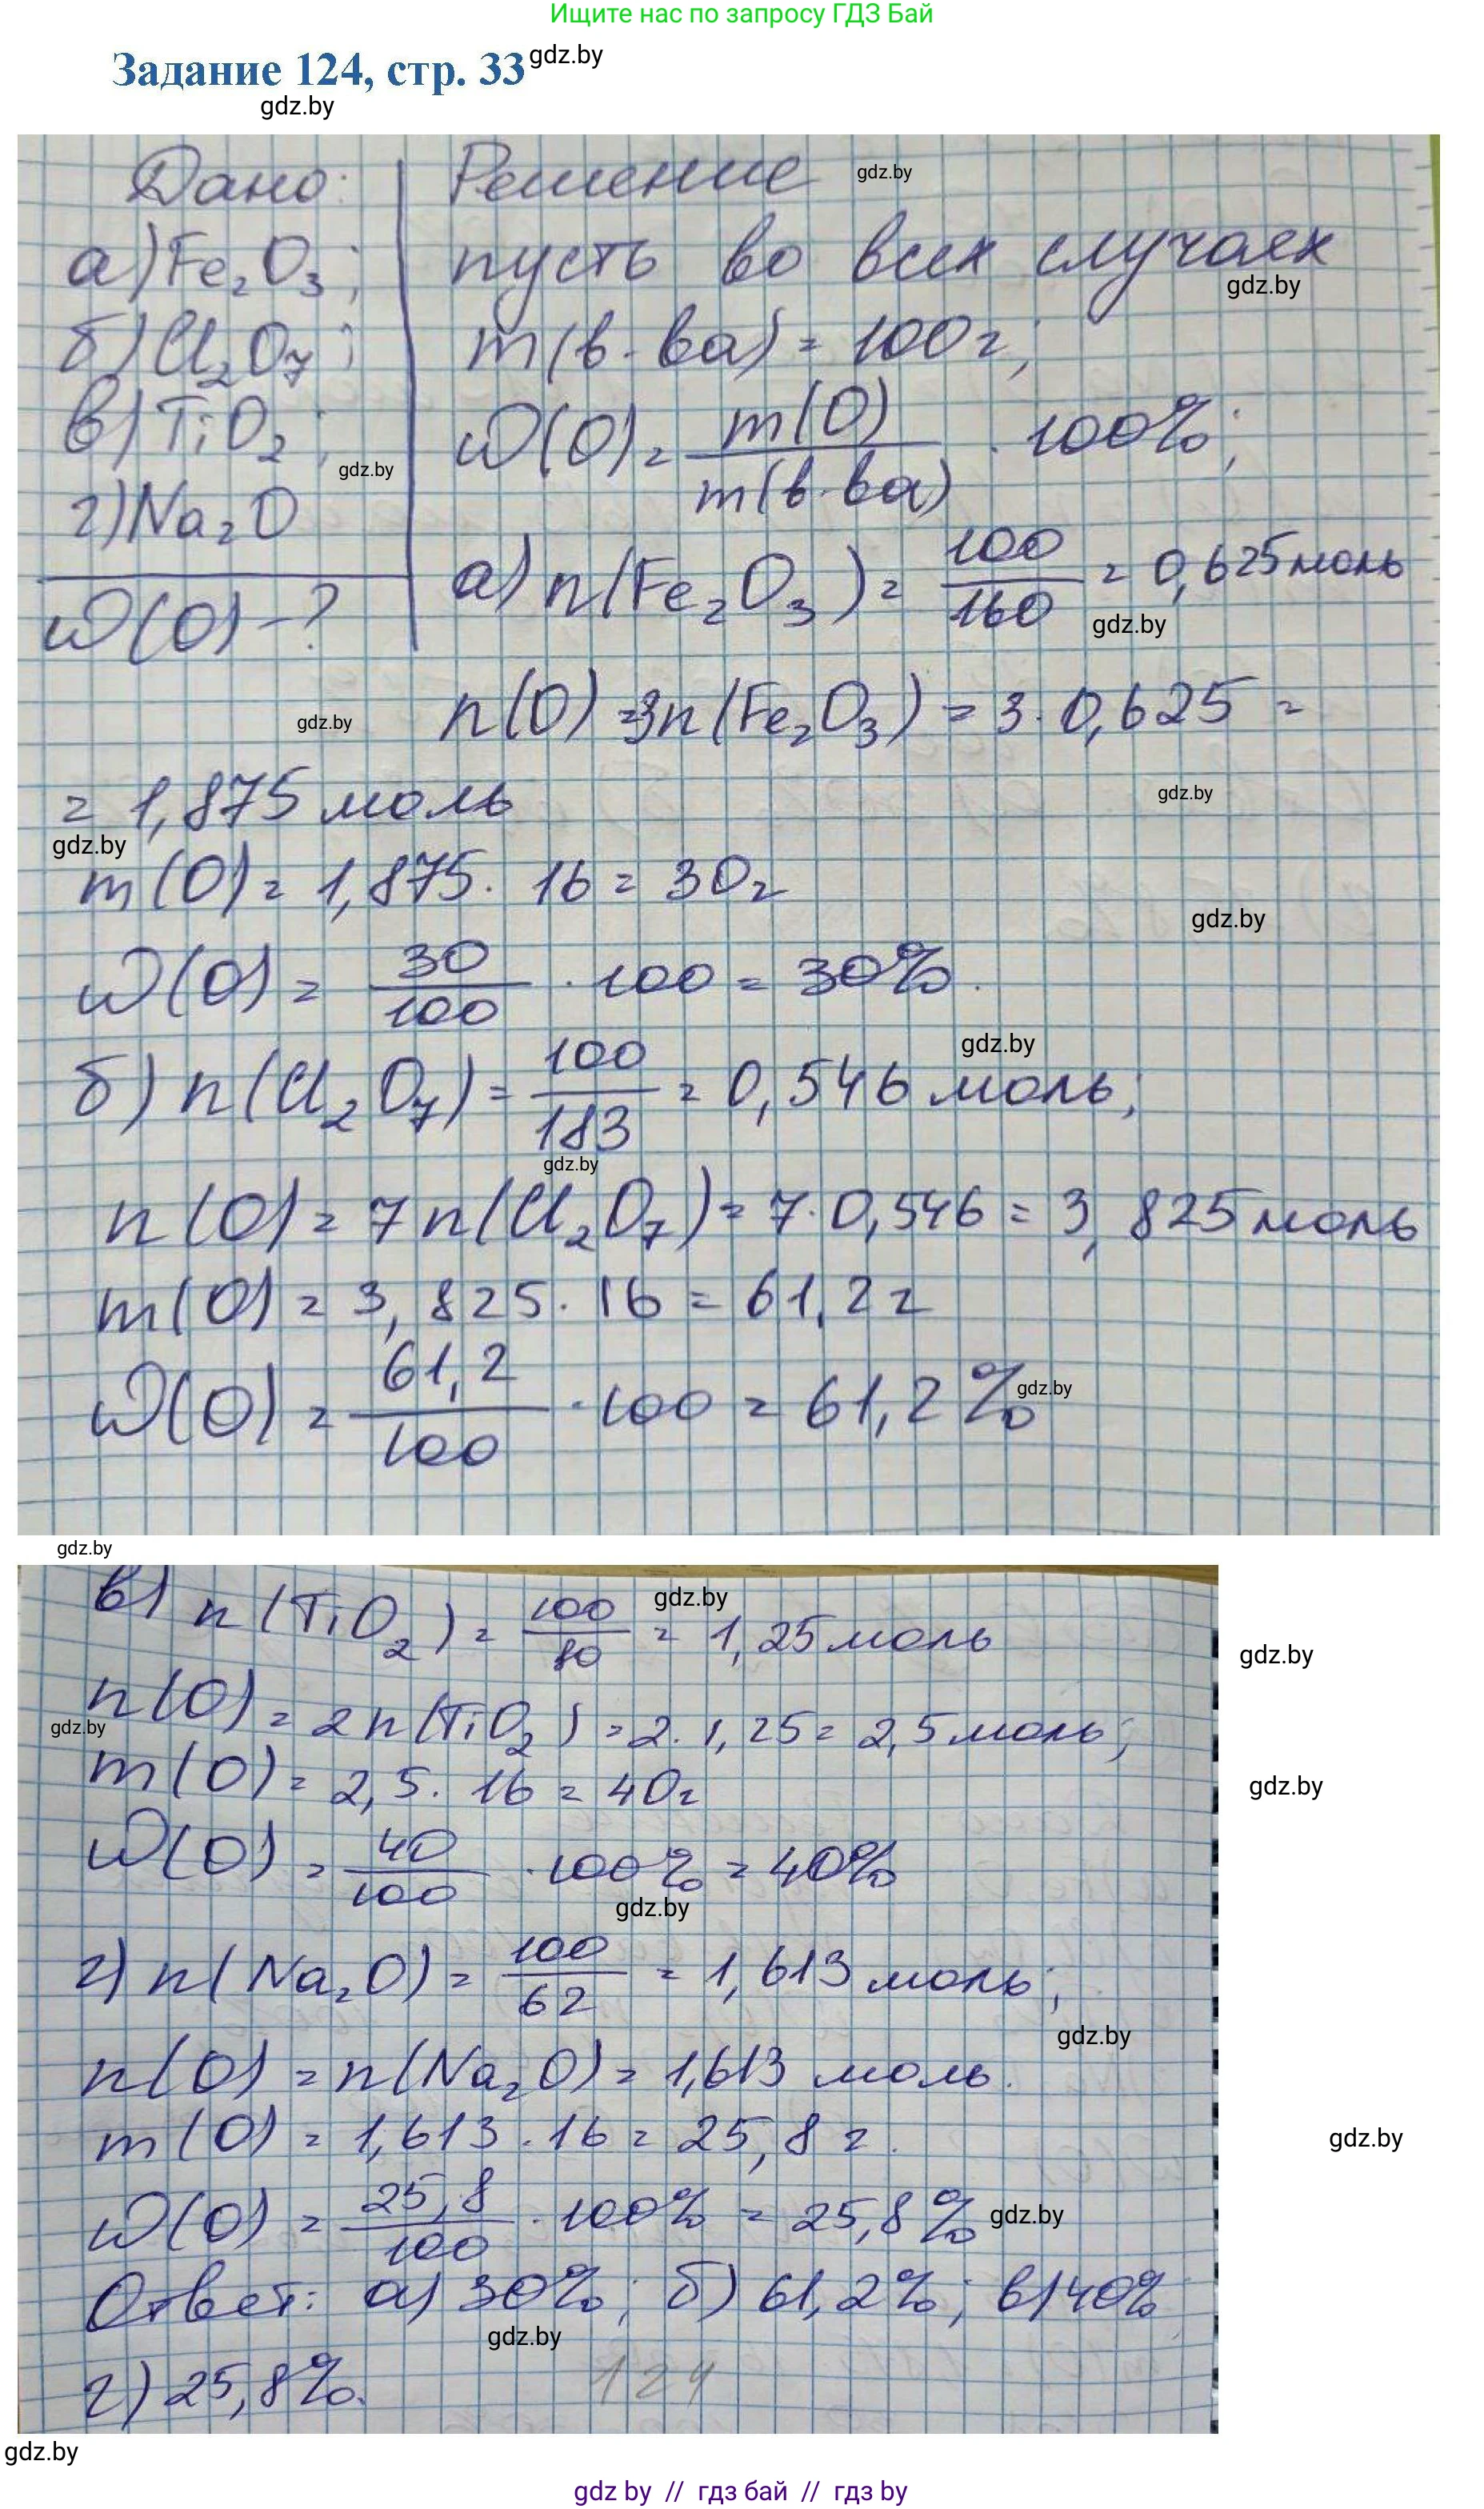 Ищите нас по запросу ГДЗ Бай
Задание 124, стр. 33 gdz.by
gdz.by
Дано: Решение gdz.by
а) Fe₂O₃; пусть во всех случаях
gdz.by
б) Cl₂O₇; m(в-ва) = 100г;
в) TiO₂; ω(O) = m(O)/m(в-ва) · 100%;
gdz.by
г) Na₂O
ω(O) - ? а) n(Fe₂O₃) = 100/160 = 0,625 моль
gdz.by
gdz.by
n(O) = 3n(Fe₂O₃) = 3 · 0,625 =
= 1,875 моль
gdz.by
gdz.by
m(O) = 1,875 · 16 = 30г
gdz.by
ω(O) = 30/100 · 100 = 30%.
gdz.by
б) n(Cl₂O₇) = 100/183 = 0,546 моль;
gdz.by
n(O) = 7n(Cl₂O₇) = 7 · 0,546 = 3,825 моль
m(O) = 3,825 · 16 = 61,2 г
ω(O) = 61,2/100 · 100 = 61,2%
gdz.by
gdz.by
в) n(TiO₂) = 100/80 = 1,25 моль
gdz.by
gdz.by
n(O) = 2n(TiO₂) = 2 · 1,25 = 2,5 моль;
gdz.by
m(O) = 2,5 · 16 = 40г
gdz.by
ω(O) = 40/100 · 100% = 40%
gdz.by
г) n(Na₂O) = 100/62 = 1,613 моль;
gdz.by
n(O) = n(Na₂O) = 1,613 моль.
m(O) = 1,613 · 16 = 25,8 г.
gdz.by
ω(O) = 25,8/100 · 100% = 25,8%
gdz.by
Ответ: а) 30%; б) 61,2%; в) 40%
gdz.by
г) 25,8%.
124
gdz.by
gdz by // гдз бай // гдз by